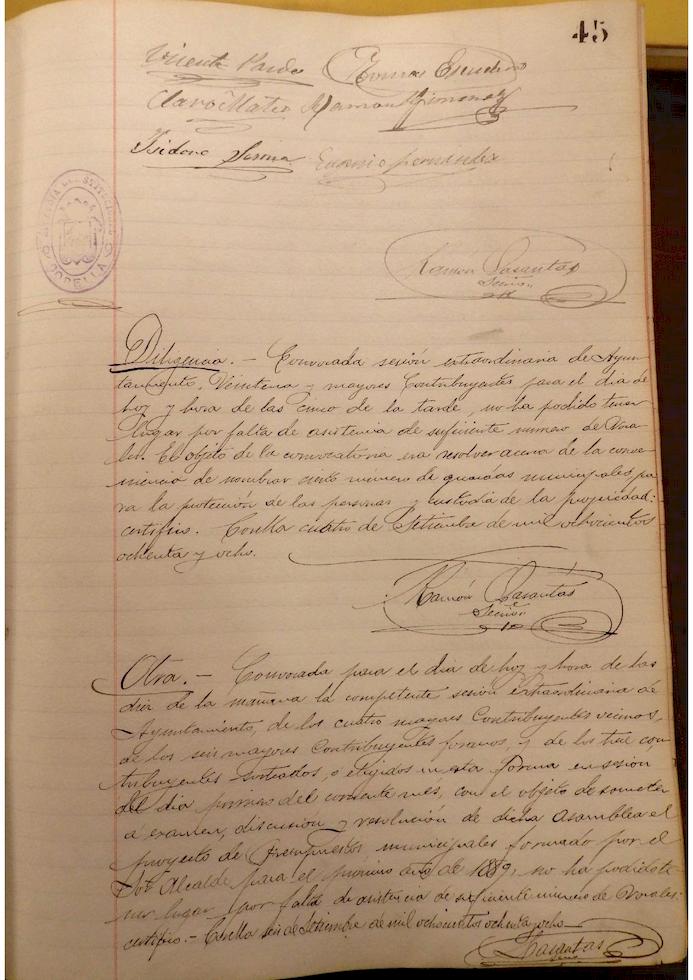 45
Vicente Pardo Tomás Escudero
Claro Mateo Ramón Gimenez
Isidoro Eugenio Fernández
CORELLA
Ramón Lasantas
Secrio
Diligencia. — Convocada sesión extraordinaria de Ayun-
tamiento, Veintena y mayores Contribuyentes para el dia de
hoy y hora de las cinco de la tarde, no ha podido tener
lugar por falta de asistencia de suficiente número de Voca-
les. El objeto de la convocatoria era resolver acerca de la conve-
niencia de nombrar cierto número de guardas municipales pa-
ra la protección de las personas y custodia de la propiedad:
certifico. Corella cuatro de Setiembre de mil ochocientos
ochenta y ocho.
Ramón Lasantas
Secrio
Otra. — Convocada para el dia de hoy y hora de las
diez de la mañana la competente sesión extraordinaria de
Ayuntamiento, de los cuatro mayores Contribuyentes vecinos,
de los seis mayores Contribuyentes foranos, y de los tres con-
tribuyentes sorteados, o elejidos en esta forma en sesión
del dia primero del corriente mes, con el objeto de someter
a examen, discusion y resolución de dicha asamblea el
proyecto de Presupuestos municipales formado por el
Sor Alcalde para el próximo año de 1889, no ha podido te-
ner lugar por falta de asistencia de suficiente número de Vocales:
certifico. — Corella seis de Setiembre de mil ochocientos ochenta y ocho
Lasantas
Secrio